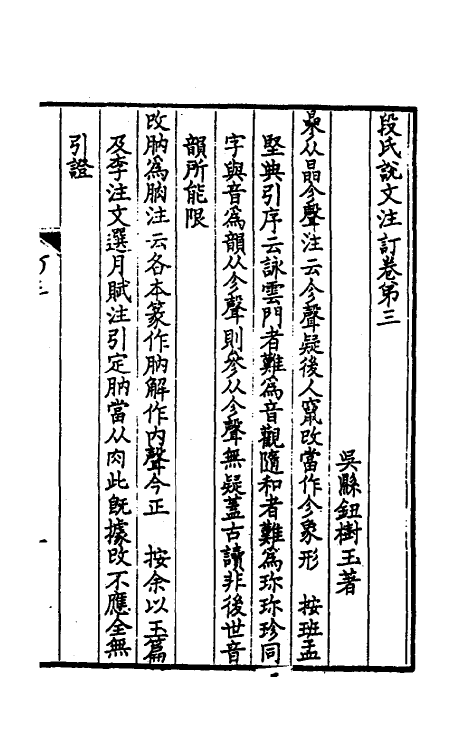 段氏說文注訂卷第三
吳縣鈕樹玉著
曑从晶㐱聲注云㐱聲疑後人竄改當作㐱象形　按班孟
堅典引序云詠雲門者難爲音觀隨和者難爲珎珎珍同
字與音爲韻从㐱聲則參从㐱聲無疑蓋古讀非後世音
韻所能限
改朒爲朒注云各本篆作肭解作內聲今正　按余以玉篇
及李注文選月賦注引定肭當从肉此旣據改不應全無
引證